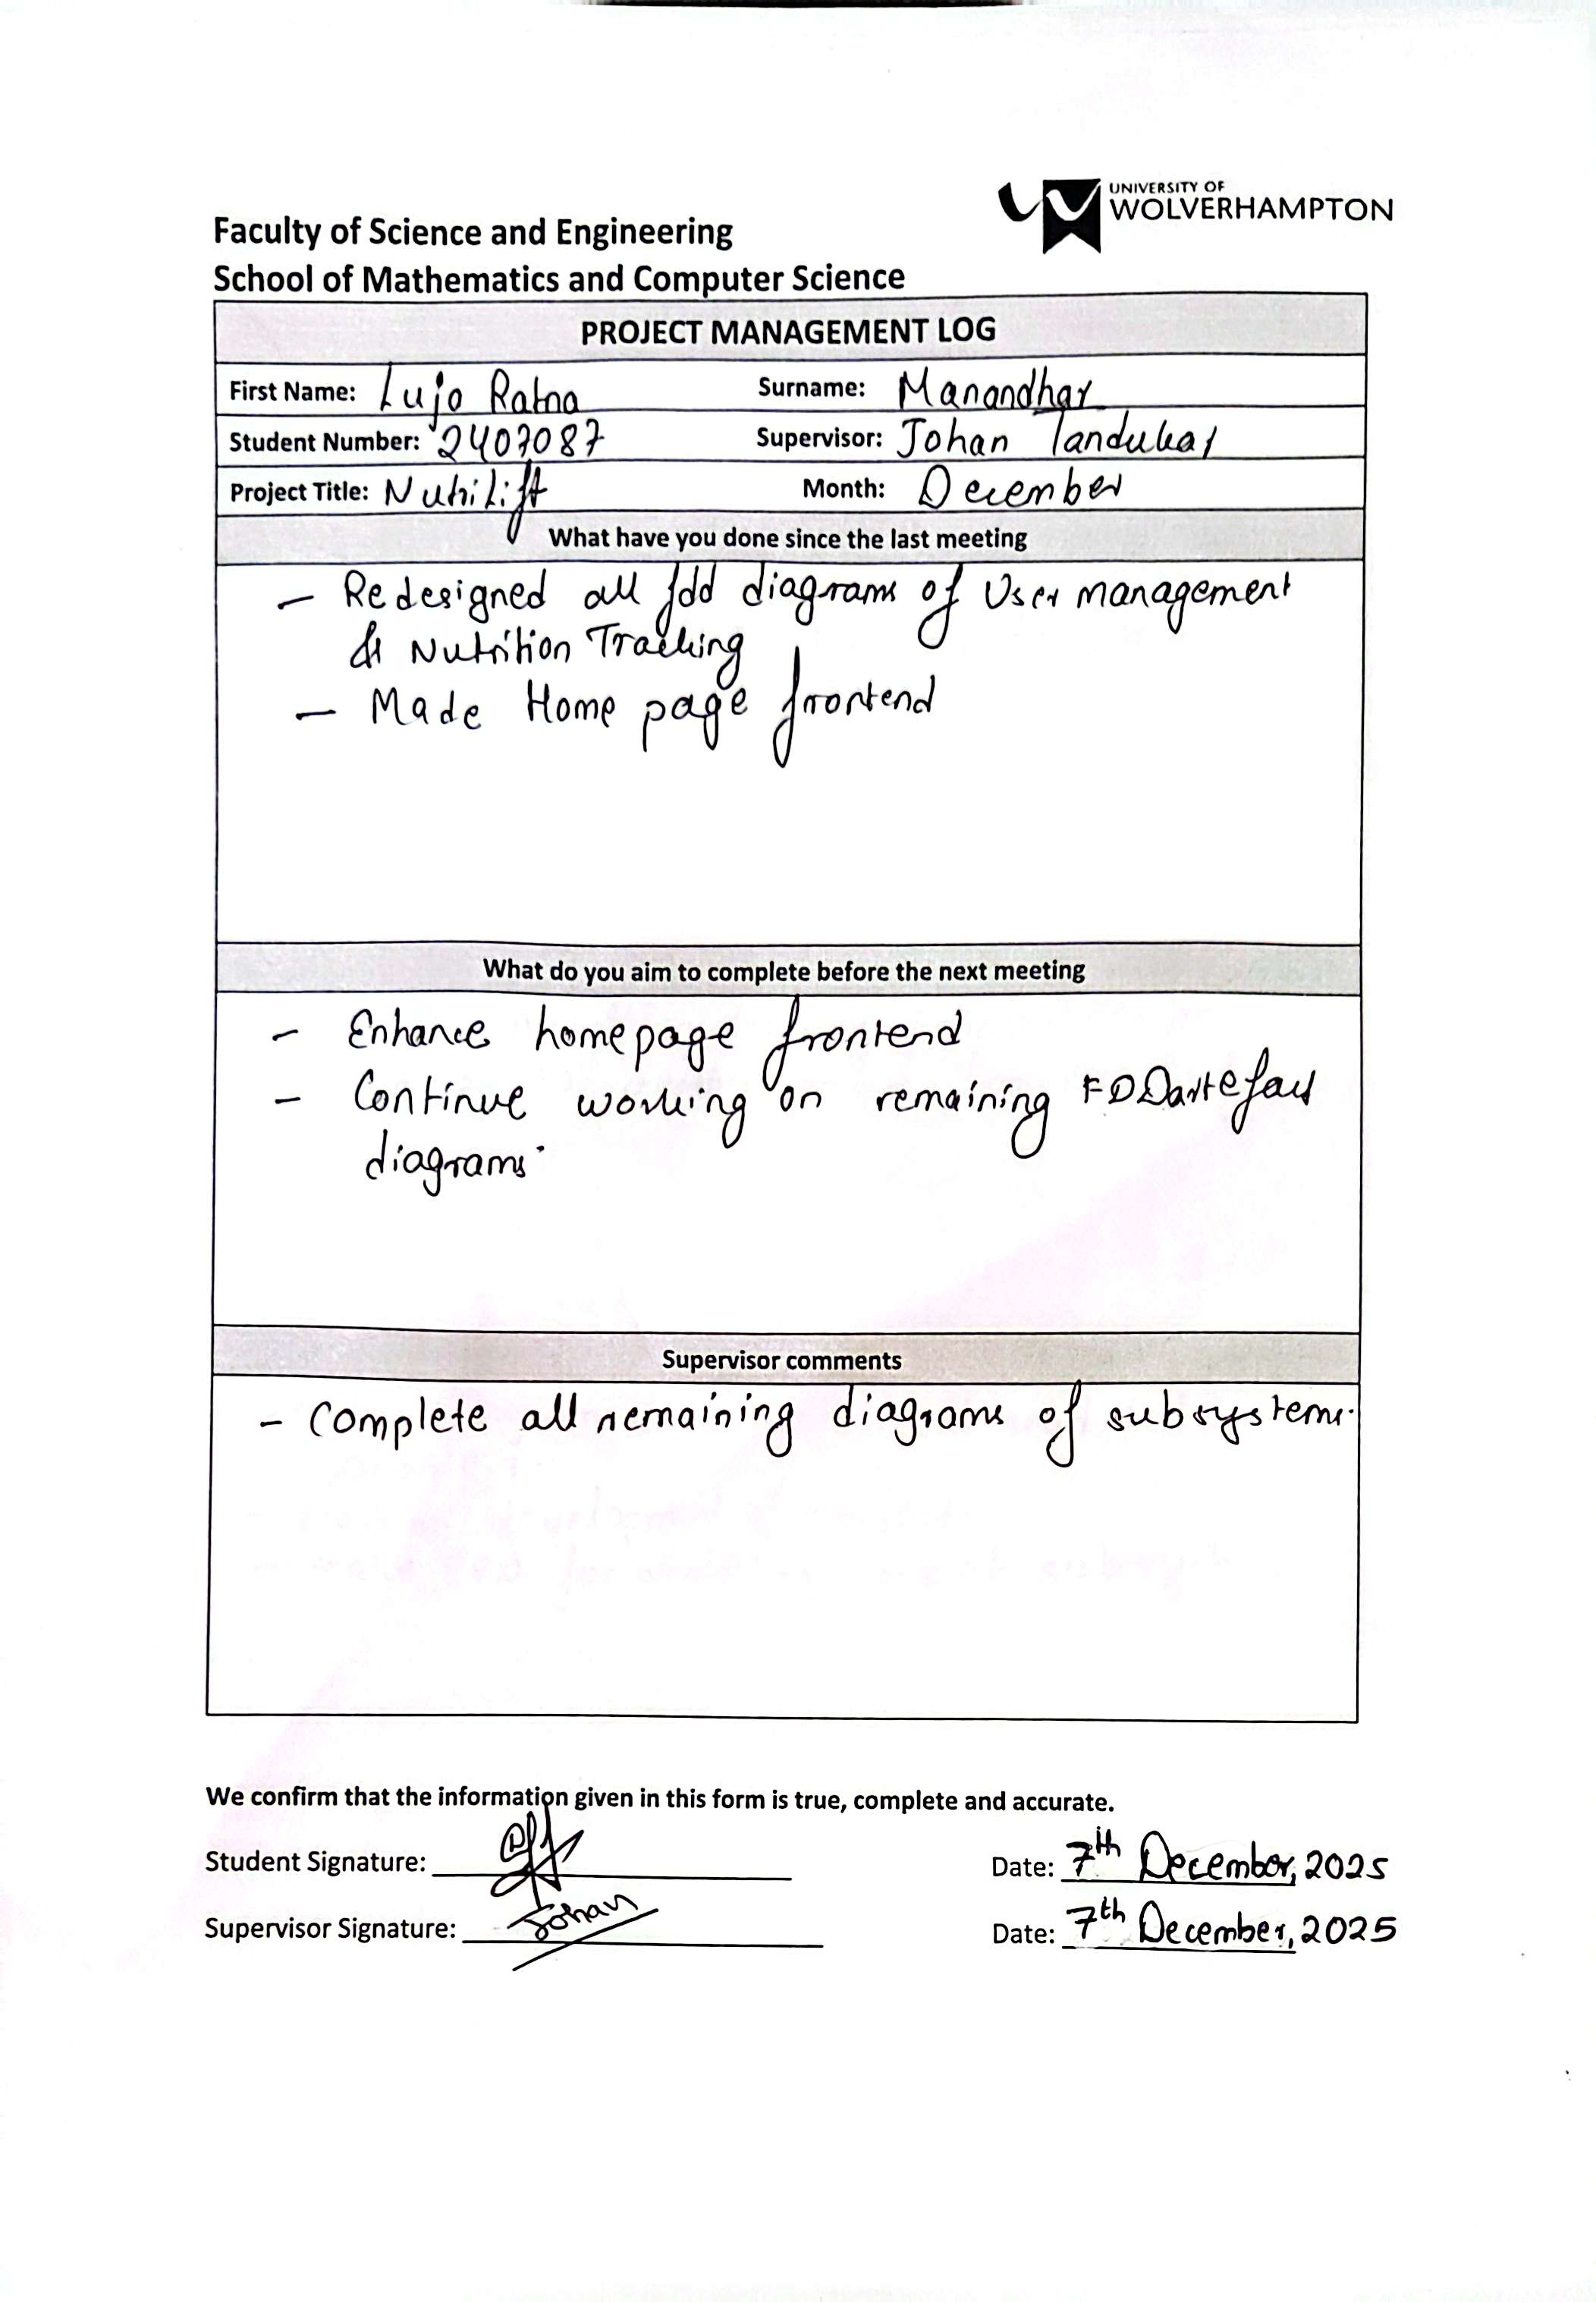 UNIVERSITY OF
WOLVERHAMPTON
Faculty of Science and Engineering
School of Mathematics and Computer Science
PROJECT MANAGEMENT LOG
First Name: Lujo Ratna Surname: Manandhar
Student Number: 2407087 Supervisor: Johan Tandukar
Project Title: NutriLift Month: December
What have you done since the last meeting
- Redesigned all fdd diagrams of User management
& Nutrition Tracking
- Made Home page frontend
What do you aim to complete before the next meeting
- Enhance homepage frontend
- Continue working on remaining FDD
diagrams.
Supervisor comments
- Complete all remaining diagrams of subsystems.
We confirm that the information given in this form is true, complete and accurate.
Student Signature: Date: 7th December, 2025
Supervisor Signature: Johan Date: 7th December, 2025